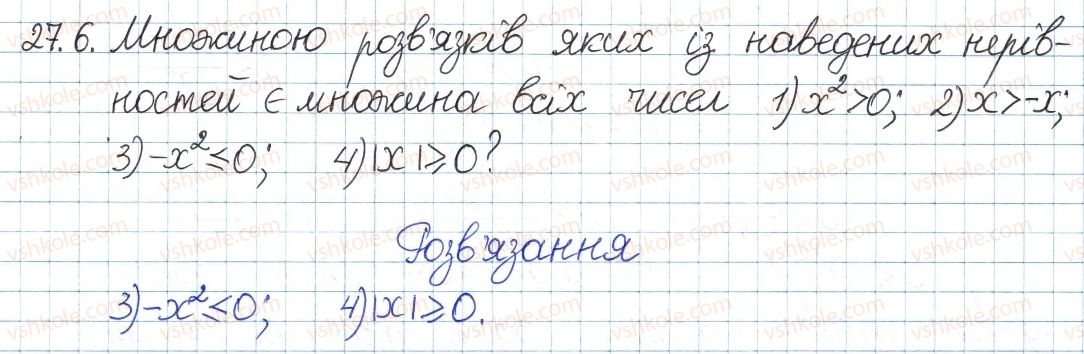 27.6. Множиною розв'язків яких із наведених нерів-
ностей є множина всіх чисел 1) x²>0; 2) x>-x;
3) -x²≤0; 4) |x|≥0?
Розв'язання
3) -x²≤0; 4) |x|≥0.